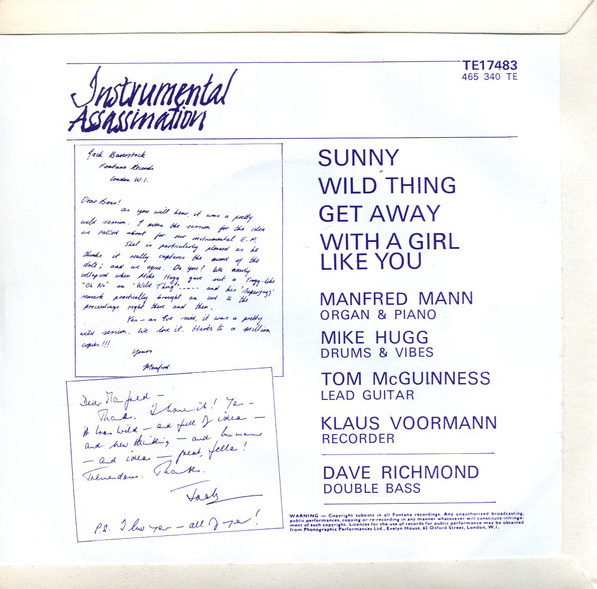 TE17483
465 340 TE
Instrumental
Assassination
Jack Baverstock
Fontana Records
London W.1.
Dear Boss!
As you will hear it was a pretty
wild session. I mean the session for the idea
we talked about for our instrumental E.P.
Shel is particularly pleased as he
thinks it really captures the mood of the
date; and we agree. Do you? We nearly
collapsed when Mike Hugg gave out a Trogg-like
"Oh No" on "Wild Thing"..... and his
remark practically brought an end to the
proceedings right there and then.
Yes - as I've said, it was a pretty
wild session. We love it. Here's to a million
copies!!!
Yours
Manfred.
Dear Manfred -
Thanks. I love it! Yes -
it was wild - and full of ideas -
and new thinking - and humour
- and ideas - great, fellas!
Tremendous. Thanks.
Jack
P.S. I love ya - all of ya!
SUNNY
WILD THING
GET AWAY
WITH A GIRL
LIKE YOU
MANFRED MANN
ORGAN & PIANO
MIKE HUGG
DRUMS & VIBES
TOM McGUINNESS
LEAD GUITAR
KLAUS VOORMANN
RECORDER
DAVE RICHMOND
DOUBLE BASS
WARNING — Copyright subsists in all Fontana recordings. Any unauthorised broadcasting,
public performance, copying or re-recording in any manner whatsoever will constitute infringe-
ment of such copyright. Licences for the use of records for public performance may be obtained
from Phonographic Performances Ltd., Evelyn House, 62 Oxford Street, London, W.1.